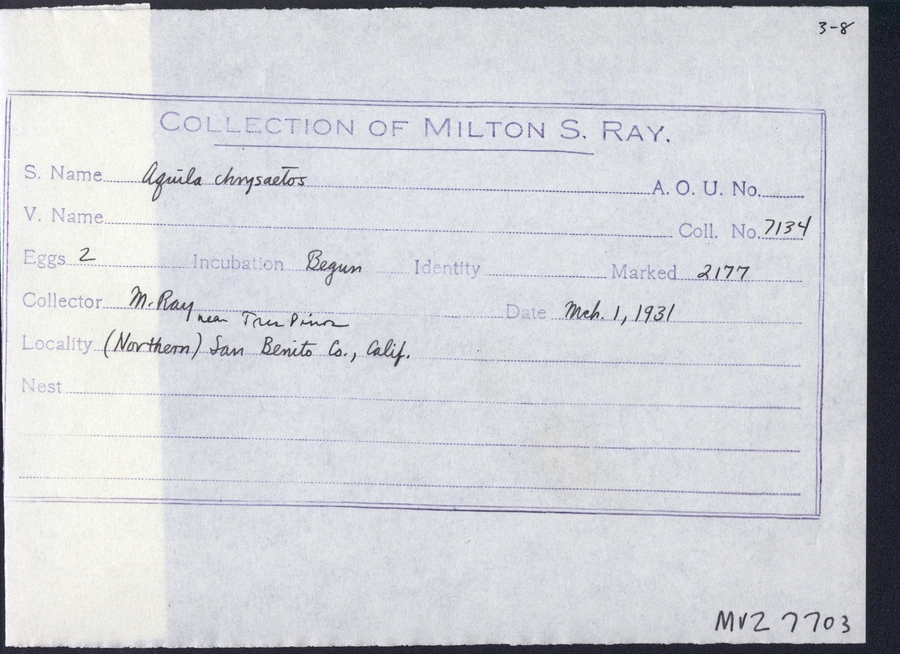 3-8
COLLECTION OF MILTON S. RAY.
S. Name Aquila chrysaetos A. O. U. No.
V. Name Coll. No. 7134
Eggs 2 Incubation Begun Identity Marked 2177
Collector M. Ray Date Mch. 1, 1931
near Tres Pinos
Locality (Northern) San Benito Co., Calif.
Nest
MVZ 7703